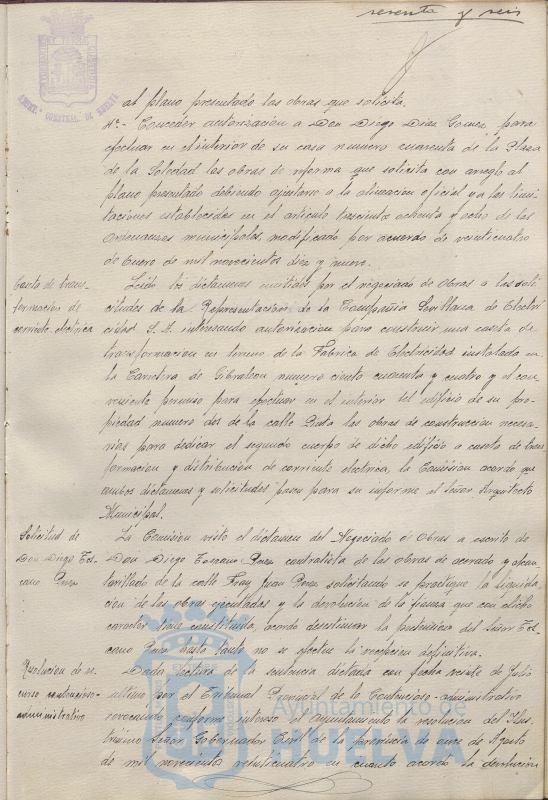 sesenta y seis
al plano presentado las obras que solicita.
Conceder autorización a Don Diego Díaz Gómez, para
efectuar en el interior de su casa número cuarenta de la Plaza
de la Soledad las obras de reforma que solicita con arreglo al
plano presentado debiendo ajustarse a la alineación oficial y a las limi-
taciones establecidas en el artículo trescientos ochenta y ocho de las
ordenanzas municipales, modificado por acuerdo de veinticuatro
de Enero de mil novecientos diez y nueve.
Caseta de trans-
formación de
corriente eléctrica
Leídos los dictámenes emitidos por el negociado de Obras a las soli-
citudes de la Representación de la Compañía Sevillana de Electri
cidad S.A. interesando autorización para construir una caseta de
transformación en terreno de la Fábrica de Electricidad instalada en
la Carretera de Gibraleón número ciento cuarenta y cuatro y el con-
veniente permiso para efectuar en el interior del edificio de su pro-
piedad número dos de la calle las obras de construcción necesa-
rias para dedicar el segundo cuerpo de dicho edificio a caseta de trans
formación y distribución de corriente eléctrica, la Comisión acordó que
ambos dictámenes y solicitudes pasen para su informe al Señor Arquitecto
Municipal.
Solicitud de
Don Diego Tos-
cano Pérez
La Comisión visto el dictamen del Negociado de Obras a escrito de
Don Diego Toscano Pérez contratista de las obras de acerado y
de la calle Fray Juan Pérez solicitando se practique la liquida
ción de las obras ejecutadas y la devolución de la fianza que con dicho
carácter tiene constituida, acordó desestimar la pretensión del Señor Tos-
cano Pérez hasta tanto no se efectúe la recepción definitiva.
Resolución de re
curso contencioso-
administrativo
Dada lectura de la sentencia dictada con fecha veinte de Julio
último por el Tribunal Provincial de lo Contencioso-administrativo
revocando conforme interesó el Ayuntamiento la resolución del Ilus
trísimo Señor Gobernador Civil de la provincia de once de Agosto
de mil novecientos veinticuatro en cuanto acordó la devolución
Ayuntamiento de
HUELVA